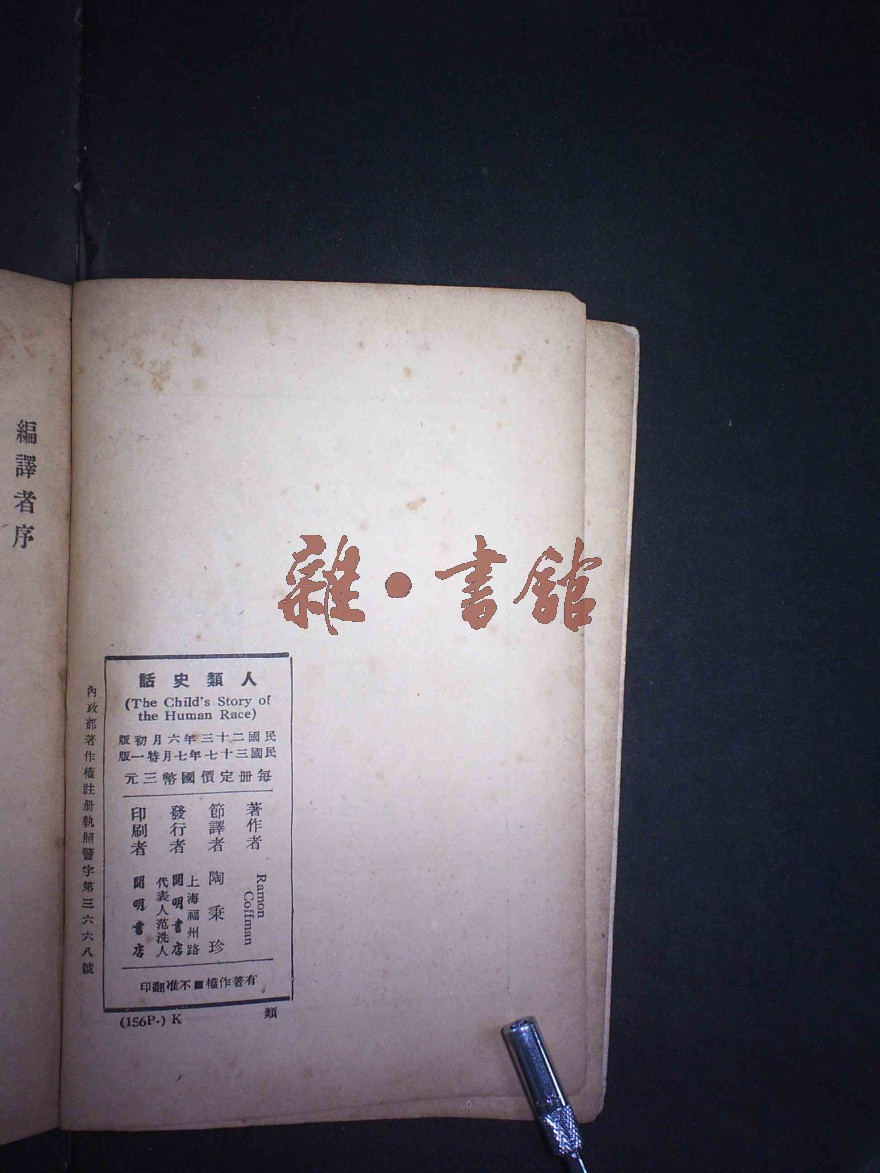 編譯者序
雜·書館
人類史話
(The Child's Story of
the Human Race)
民國二十三年六月初版
民國三十七年七月特一版
每册定價國幣三元
著作者 Ramon Coffman
節譯者 陶秉珍
發行者 上海福州路
開明書店
代表人范洗人
印刷者 開明書店
有著作權■不准翻印
內政部著作權註册執照警字第三六六八號
(156P.) K
類